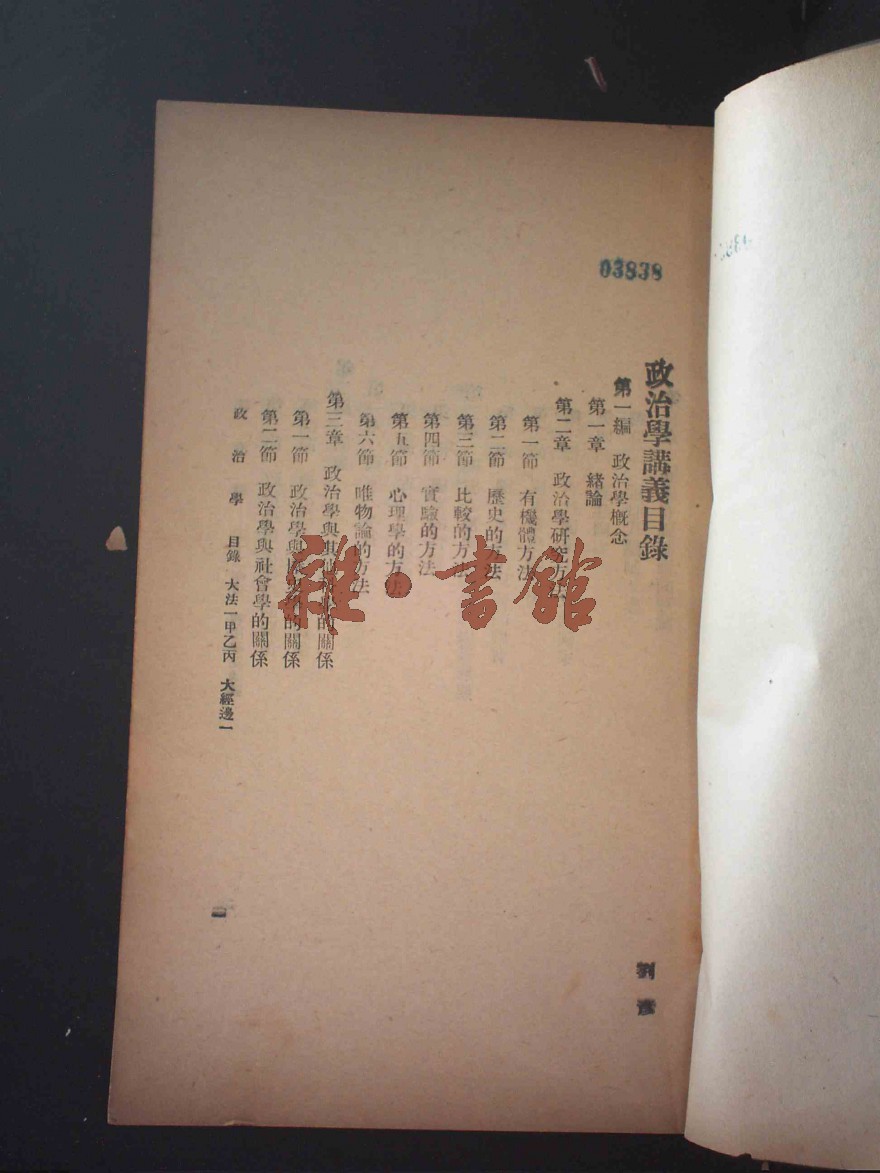 03838
政治學講義目錄
劉彥
第一編 政治學概念
第一章 緒論
第二章 政治學研究方法
第一節 有機體方法
第二節 歷史的方法
第三節 比較的方法
第四節 實驗的方法
第五節 心理學的方法
第六節 唯物論的方法
第三章 政治學與其他科學的關係
第一節 政治學與 的關係
第二節 政治學與社會學的關係
政治學 目錄 大法一甲乙丙 大經邊一
雜·書館